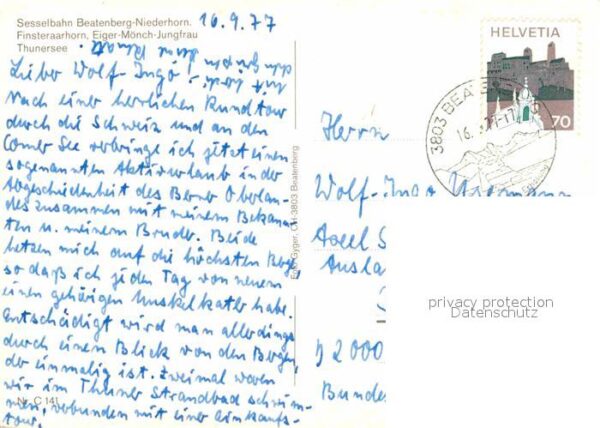 Sesselbahn Beatenberg-Niederhorn.
Finsteraarhorn, Eiger-Mönch-Jungfrau
Thunersee
16.9.77
Lieber Wolf-Ingo!
Nach einer herrlichen Rundtour
durch die Schweiz und an den
Comer See verbringe ich jetzt einen
sogenannten Aktivurlaub in der
Abgeschiedenheit des Berner Oberlan-
des zusammen mit meinem Bekann-
ten u. meinem Bruder. Beide
hetzen mich auf die höchsten Berge
so daß ich jeden Tag von neuem
einen gehörigen Muskelkater habe.
Entschädigt wird man allerdings
durch einen Blick von den Bergen,
der einmalig ist. Zweimal waren
wir im Thuner Strandbad schwim-
men, verbunden mit einer Einkaufs-
tour.
Nr. C 141
Foto Gyger, CH-3803 Beatenberg
HELVETIA
70
3803 BEATENBERG
16.
Herrn
Wolf-Ingo
Axel S
Ausla
D 2000
Bundes
privacy protection
Datenschutz